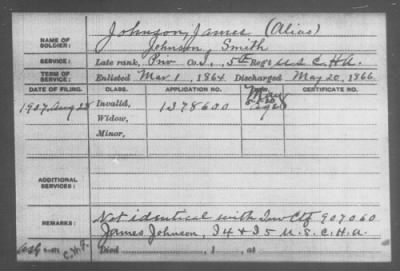 NAME OF SOLDIER: Johnson, James (Alias)
Johnson, Smith
SERVICE: Late rank, Priv Co. I, 5th Regt U.S.C.H.A.
TERM OF SERVICE: Enlisted Mar. 1, 1864 Discharged May 20, 1866.
DATE OF FILING. CLASS. APPLICATION NO. CERTIFICATE NO.
1907, Aug 28 Invalid, 1378600
Widow,
Minor,
ADDITIONAL SERVICES:
REMARKS: Not identical with Inv Ctf 907060
James Johnson, I 4 & I 5 U.S.C.H.A.
Died , 1 , at